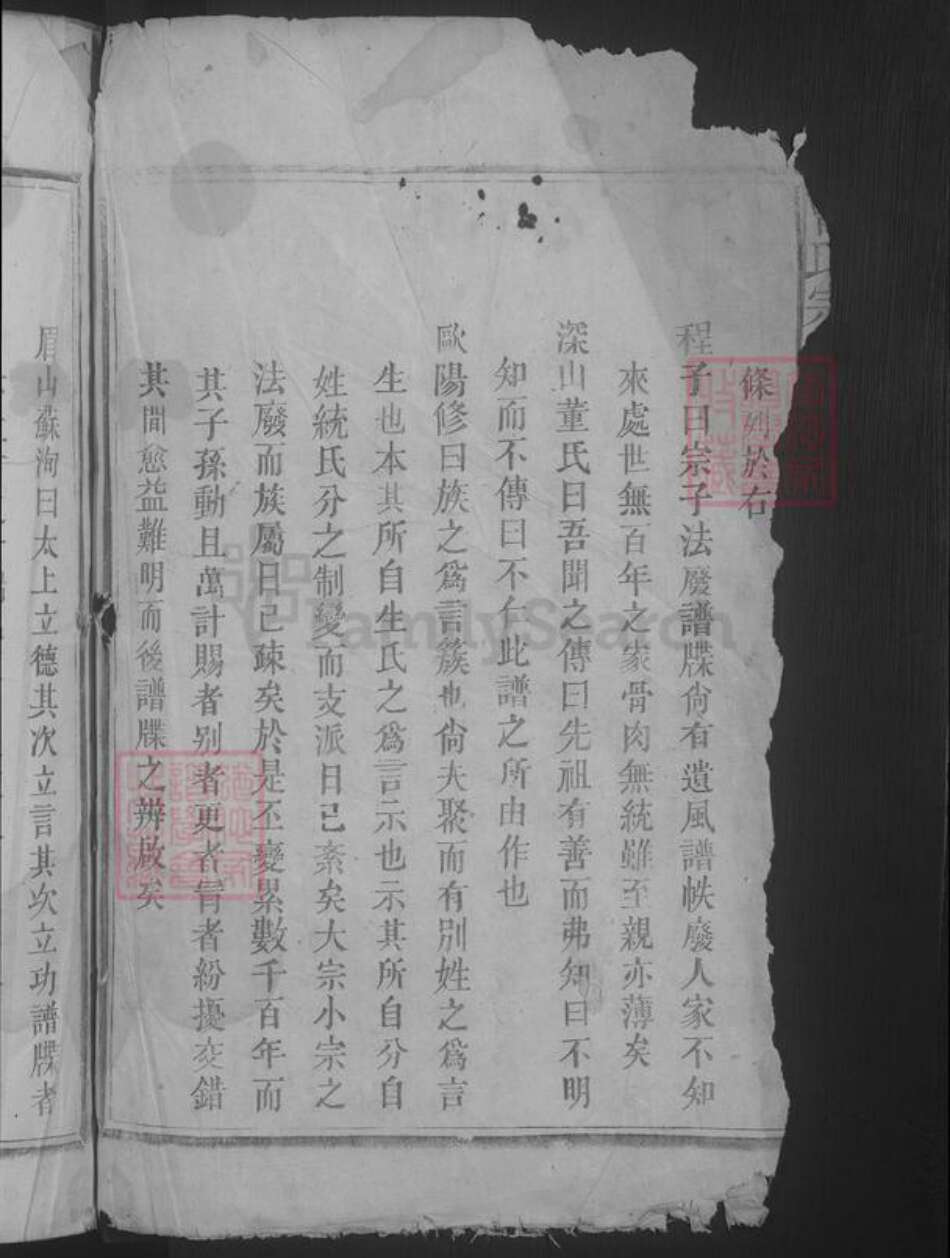 條列於右
程子曰宗子法廢譜牒尙有遺風譜帙廢人家不知
來處世無百年之家骨肉無統雖至親亦薄矣
深山董氏曰吾聞之傳曰先祖有善而弗知曰不明
知而不傳曰不仁此譜之所由作也
歐陽修曰族之爲言簇也尙夫聚而有別姓之爲言
生也本其所自生氏之爲言示也示其所自分自
姓統氏分之制變而支派日已紊矣大宗小宗之
法廢而族屬日已疎矣於是丕變累數千百年而
其子孫動且萬計賜者別者更者冐者紛擾交錯
其間愈益難明而後譜牒之辨啟矣
眉山蘇洵曰太上立德其次立言其次立功譜牒者
FamilySearch